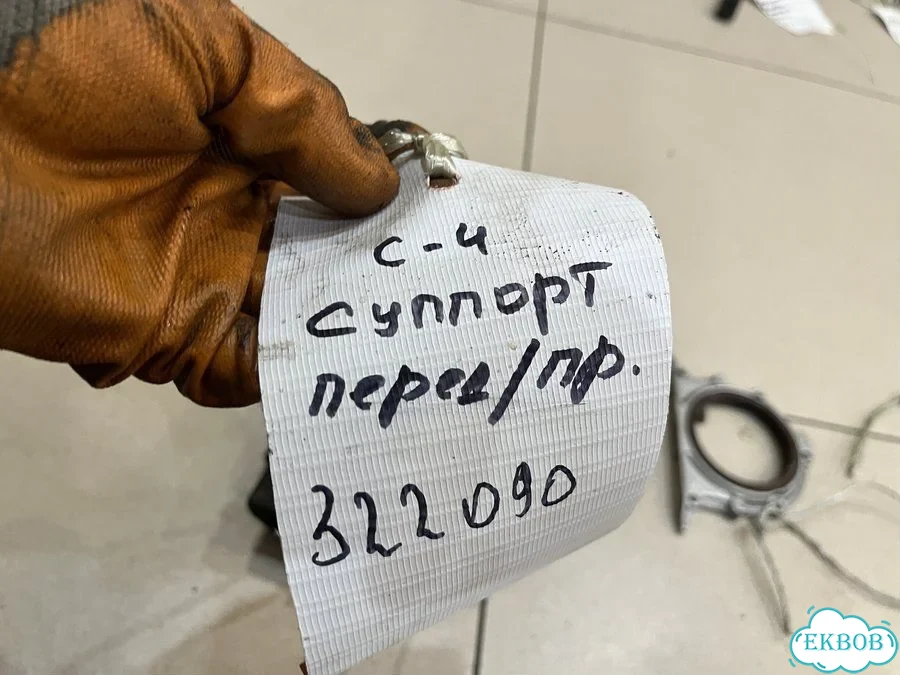 с-4
суппорт
перед/пр.
322090
EKBOB